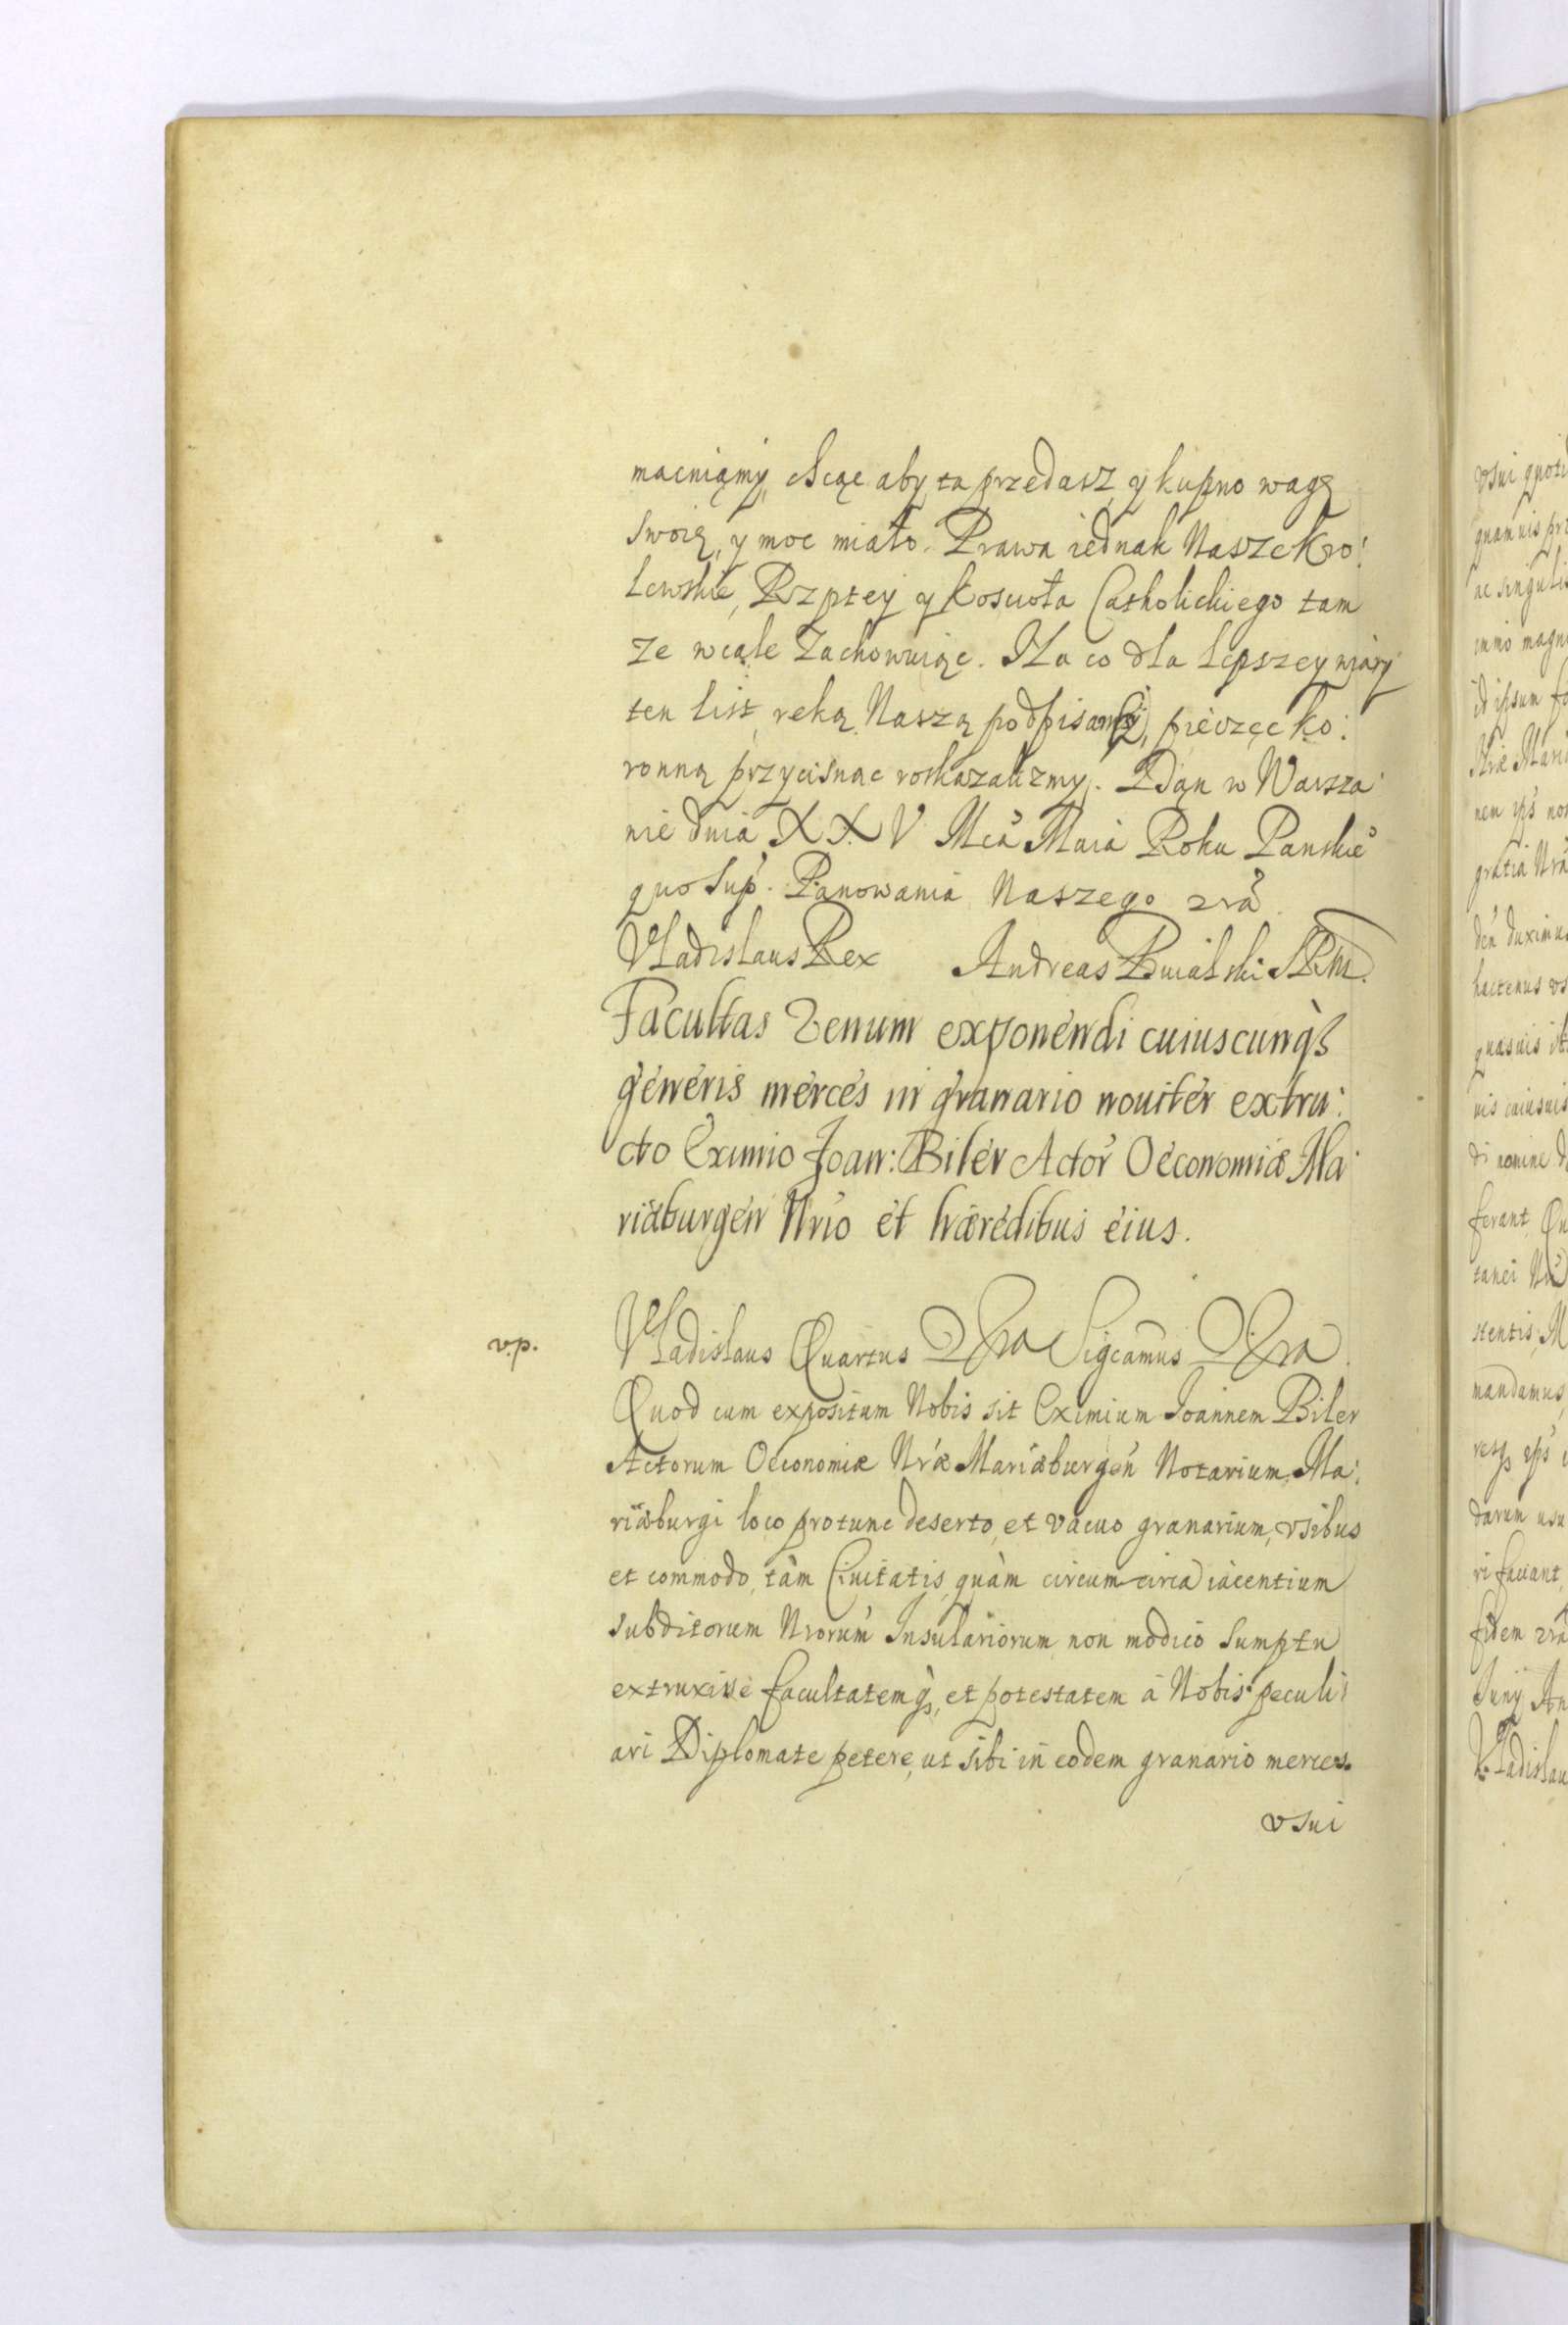 macniąmy, chcąc aby ta przedasz y kupno wagę
swoię, y moc miało. Prawa iednak Nasze Kro:
lewskie, Rzptey y Koscioła Catholickiego tam
ze wcale Zachowuiąc. Na co dla lepszey wiary
ten list, reką Naszą podpisany, pieczęc ko:
ronną przycisnac roskazalizmy. Dan w Warsza
wie dnia XXV Mca Maia Roku Panskie
quo sup. Panowania Naszego zra
Vladislaus Rex Andreas Ruialski
Facultas Venum exponendi cuiuscunqȝ
generis merces in granario nouiter extru:
cto Eximio Joan: Biler Actor Oeconomiæ Ma
riæburgen Nrio et hæredibus eius.
v.p. Vladislaus Quartus Sigcamus
Quod cum expositum Nobis sit Eximium Joannem Biler
Actorum Oeconomiæ Nræ Mariæburgen Notarium, Ma:
riæburgi loco protunc deserto, et vacuo granarium, vsibus
et commodo, tàm Ciuitatis, quàm circum circa iacentium
subditorum Nrorum Insulariorum non modico sumptu
extruxisse facultatemqȝ, et potestatem à Nobis peculi
ari Diplomate petere, ut sibi in eodem granario merces
vsui
vsui
quamuis
ac singulis
immo
id ipsum
Nræ
nem
gratia
den duximus
hactenus
quasuis
uis cuiusuis
di nomine
ferant
tanei
stentis
mandamus
darum
ri faciant
fidem
Junij
Vladislau